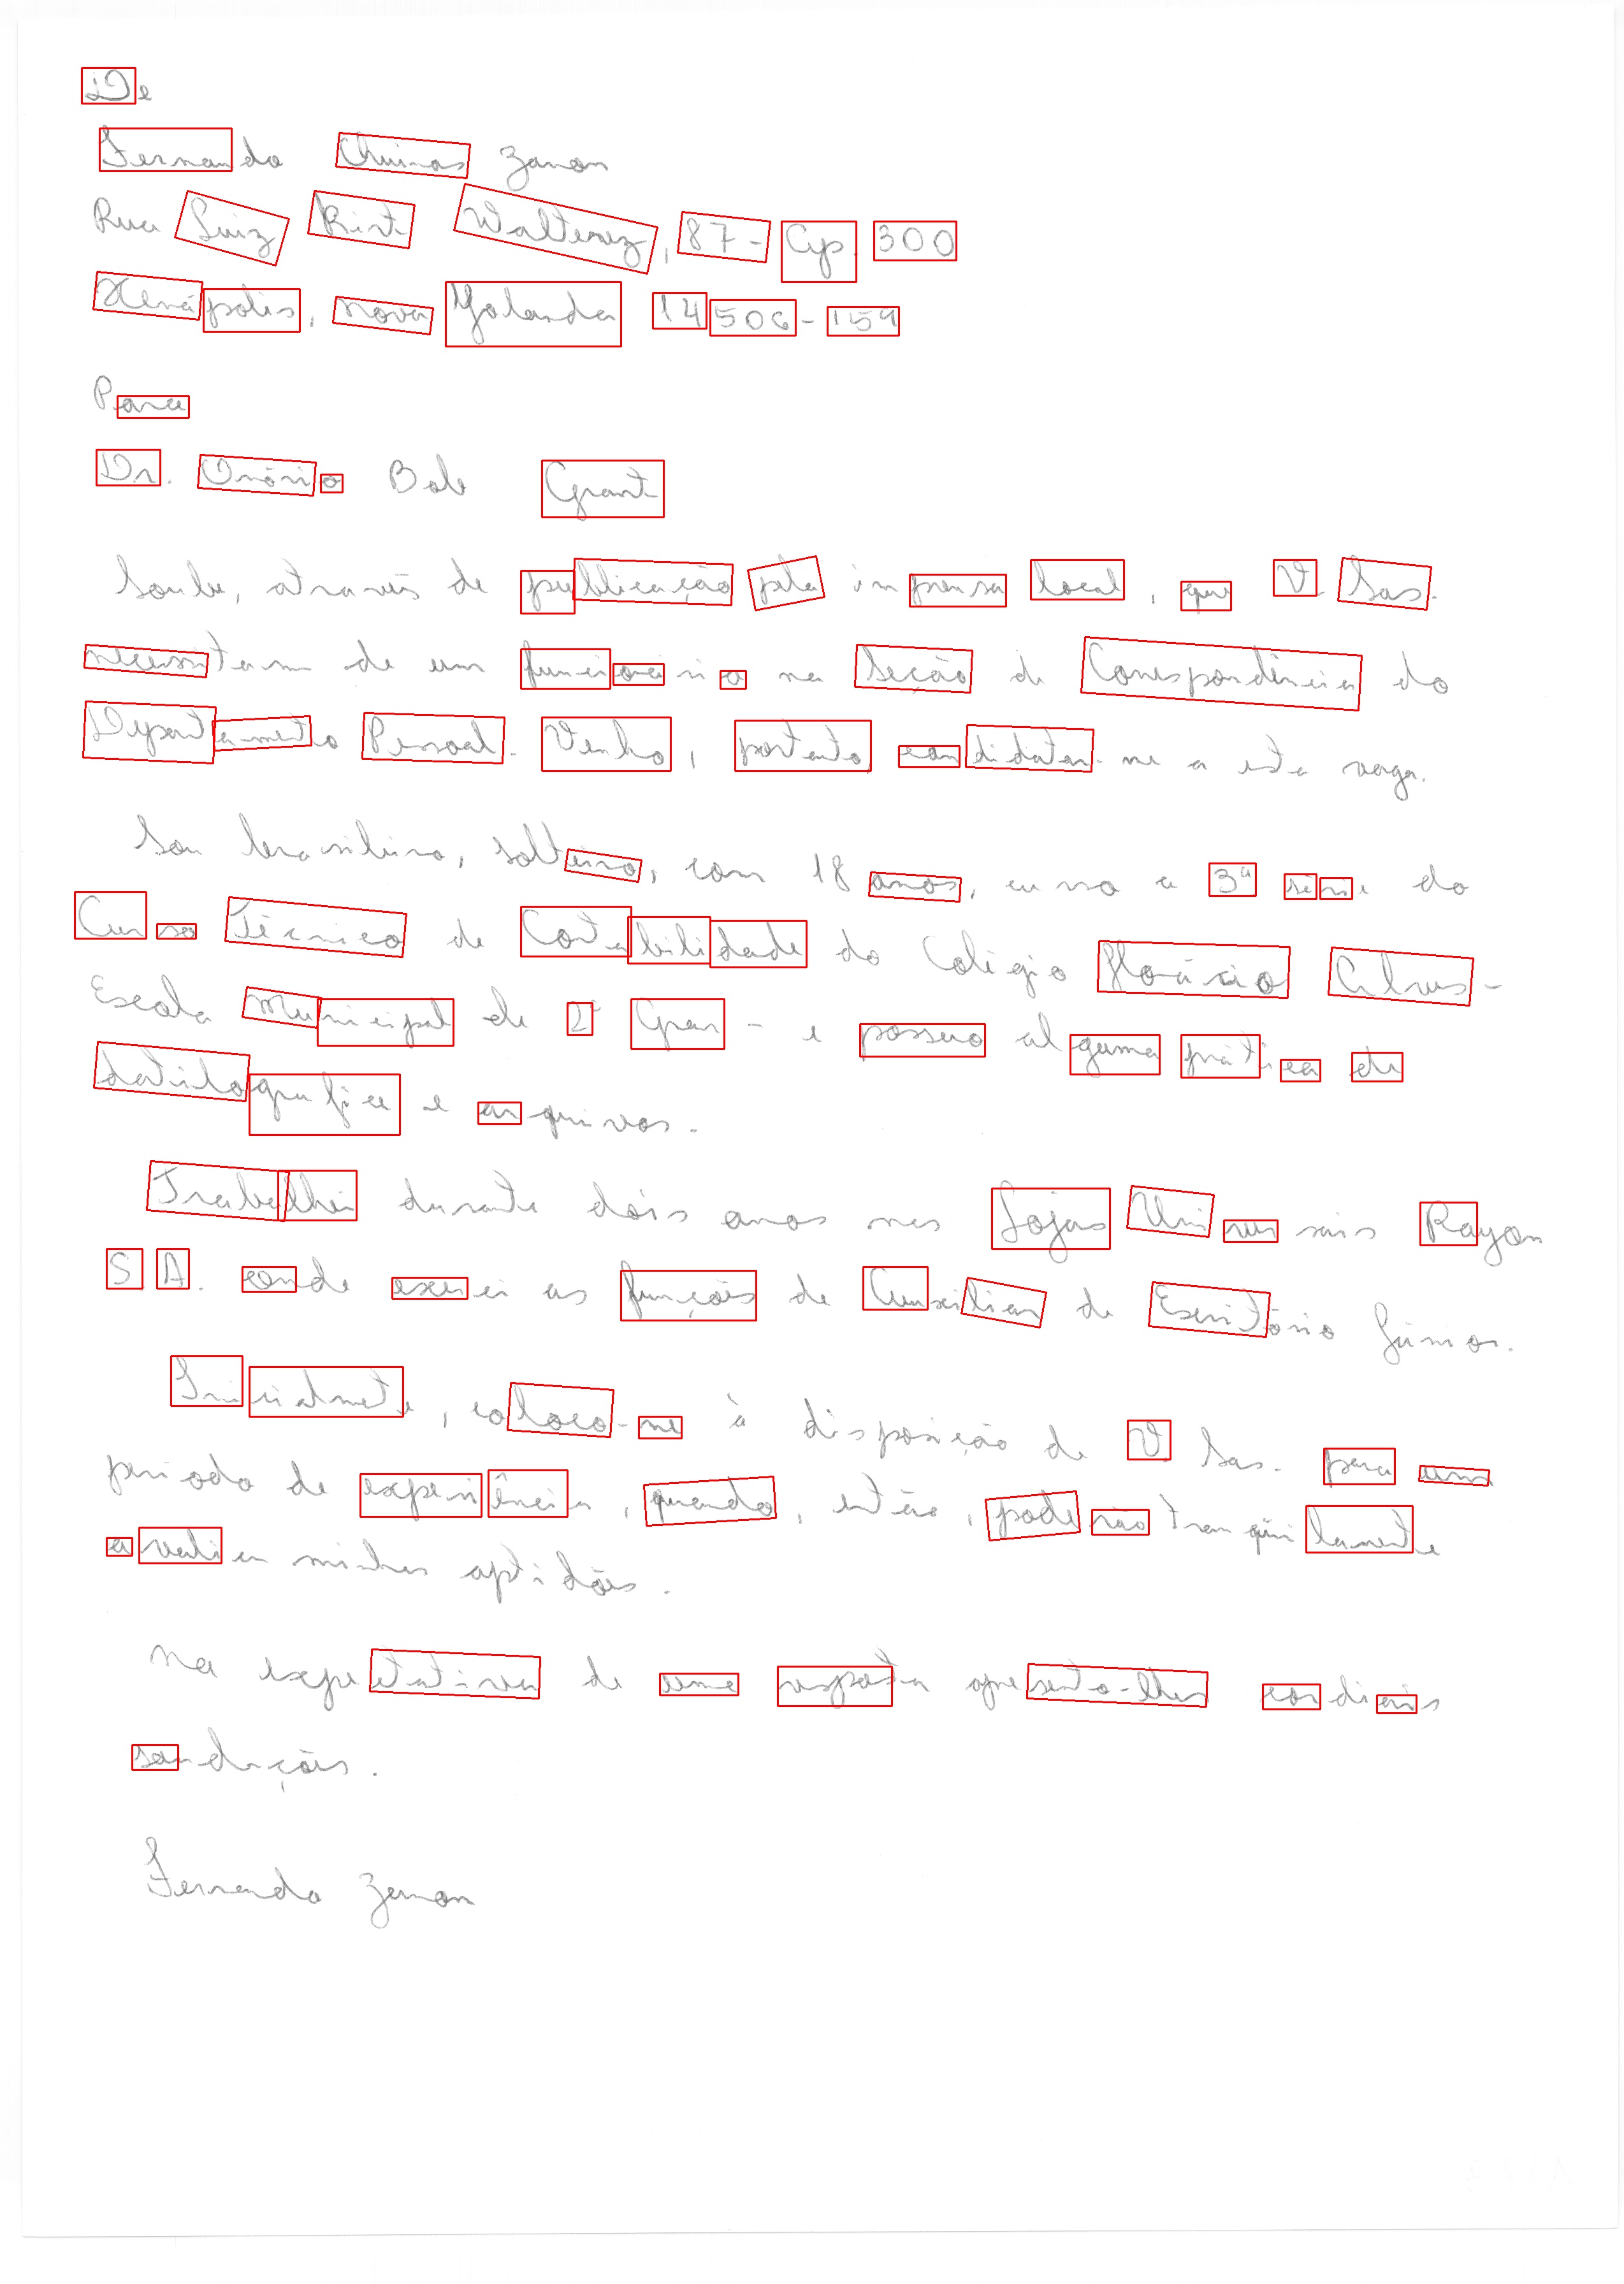 De
Fernando Chuinas Zanon
Rua Luiz Kint Walterez, 87 - Cep. 300
Xenápolis, nova Yolanda 14506-159
Para
Dr. Onório Bale Grant
Soube, através de publicação pela imprensa local, que V. Sas.
necessitam de um funcionário na Seção de Correspondência do
Departamento Pessoal. Venho, portanto, candidatar-me a esta vaga.
Sou brasileiro, solteiro, com 18 anos, curso a 3ª série do
Curso Técnico de Contabilidade do Colégio Horácio Calvus -
Escola Municipal de 2º Grau - e possuo alguma prática de
datilografia e arquivos.
Trabalhei durante dois anos nas Lojas Universais Rayon
S A. onde exerci as funções de Auxiliar de Escritório Júnior.
Inicialmente, coloco-me à disposição de V. Sas. para um
periodo de experiência, quando, então, poderão tranqüilamente
avaliar minhas aptidões.
Na expetativa de uma resposta apresento-lhes cordiais
saudações.
Fernando Zanon